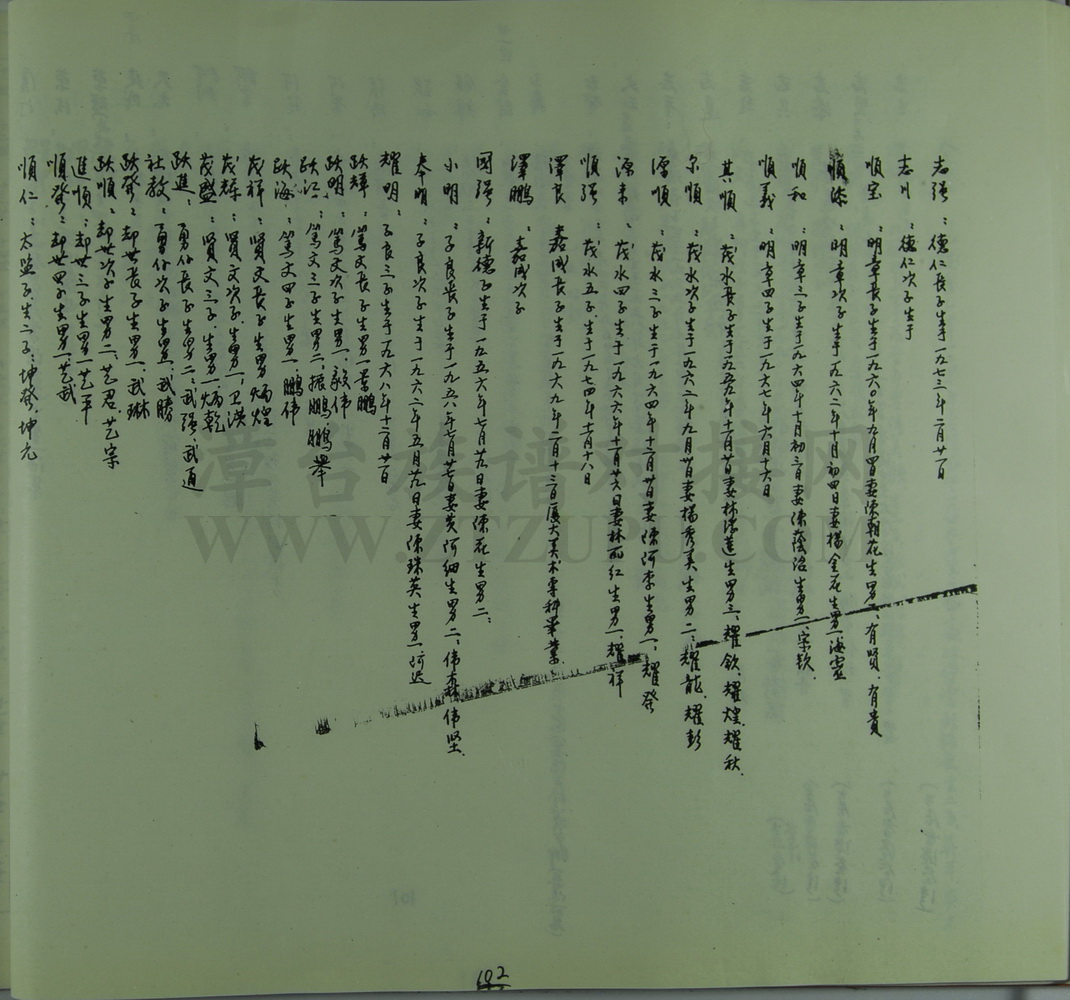 志强：德仁長子生于一九七三年二月廿一日
志川：德仁次子生于
順宝：明章長子生于一九六〇年九月四日妻陳朝花生男二、有賢、有貴
順添：明章次子生于一九六二年十月初四日妻楊金花生男一海
順和：明章三子生于一九六四年十月初三日妻陳蔭治生男一、宗欽
順義：明章四子生于一九六七年六月十六日
其順：茂水長子生于一九五九年十一月廿日妻林添蓮生男三、耀欽、耀煌、耀秋
尔順：茂水次子生于一九六二年九月廿日妻楊秀美生男二、耀龍、耀彭
順：茂水三子生于一九六四年十二月廿日妻陳阿李生男一、耀發
源来：茂水四子生于一九六六年十一月廿六日妻林丽红生男一、耀祥
順强：茂水五子生于一九七四年十一月十八日
澤良：嘉成長子生于一九六九年二月十三日厦大美术專科畢業
澤鵬：嘉成次子
國强：新德子生于一九五六年七月廿五日妻陳花生男二：
小明：子良長子生于一九五八年七月廿七日妻黄阿細生男二、伟森、伟坚
奉明：子良次子生于一九六二年五月廿九日妻陳珠英生男一、阿达
耀明：子良三子生于一九六八年十二月廿一日
跃輝：篤文長子生男一景鵬
跃明：篤文次子生男一、毅伟
跃江：篤文三子生男二、振鵬、鵬舉
跃海：篤文四子生男一、鵬伟
茂祥：賢文長子生男一炳煌
茂輝：賢文次子生男一、卫洪
茂盛：賢文三子生男一、炳乾
跃進：勇仔長子生男二：武强、武通
社教：勇仔次子生男一、武勝
跃發：却世長子生男一、武琳
跃順：却世次子生男二、艺君、艺宗
進順：却世三子生男一艺平
順發：却世四子生男一艺武
順仁：太監子生二子：坤發、坤元
192
草台族谱对接网
WWW.CTZUPU.COM